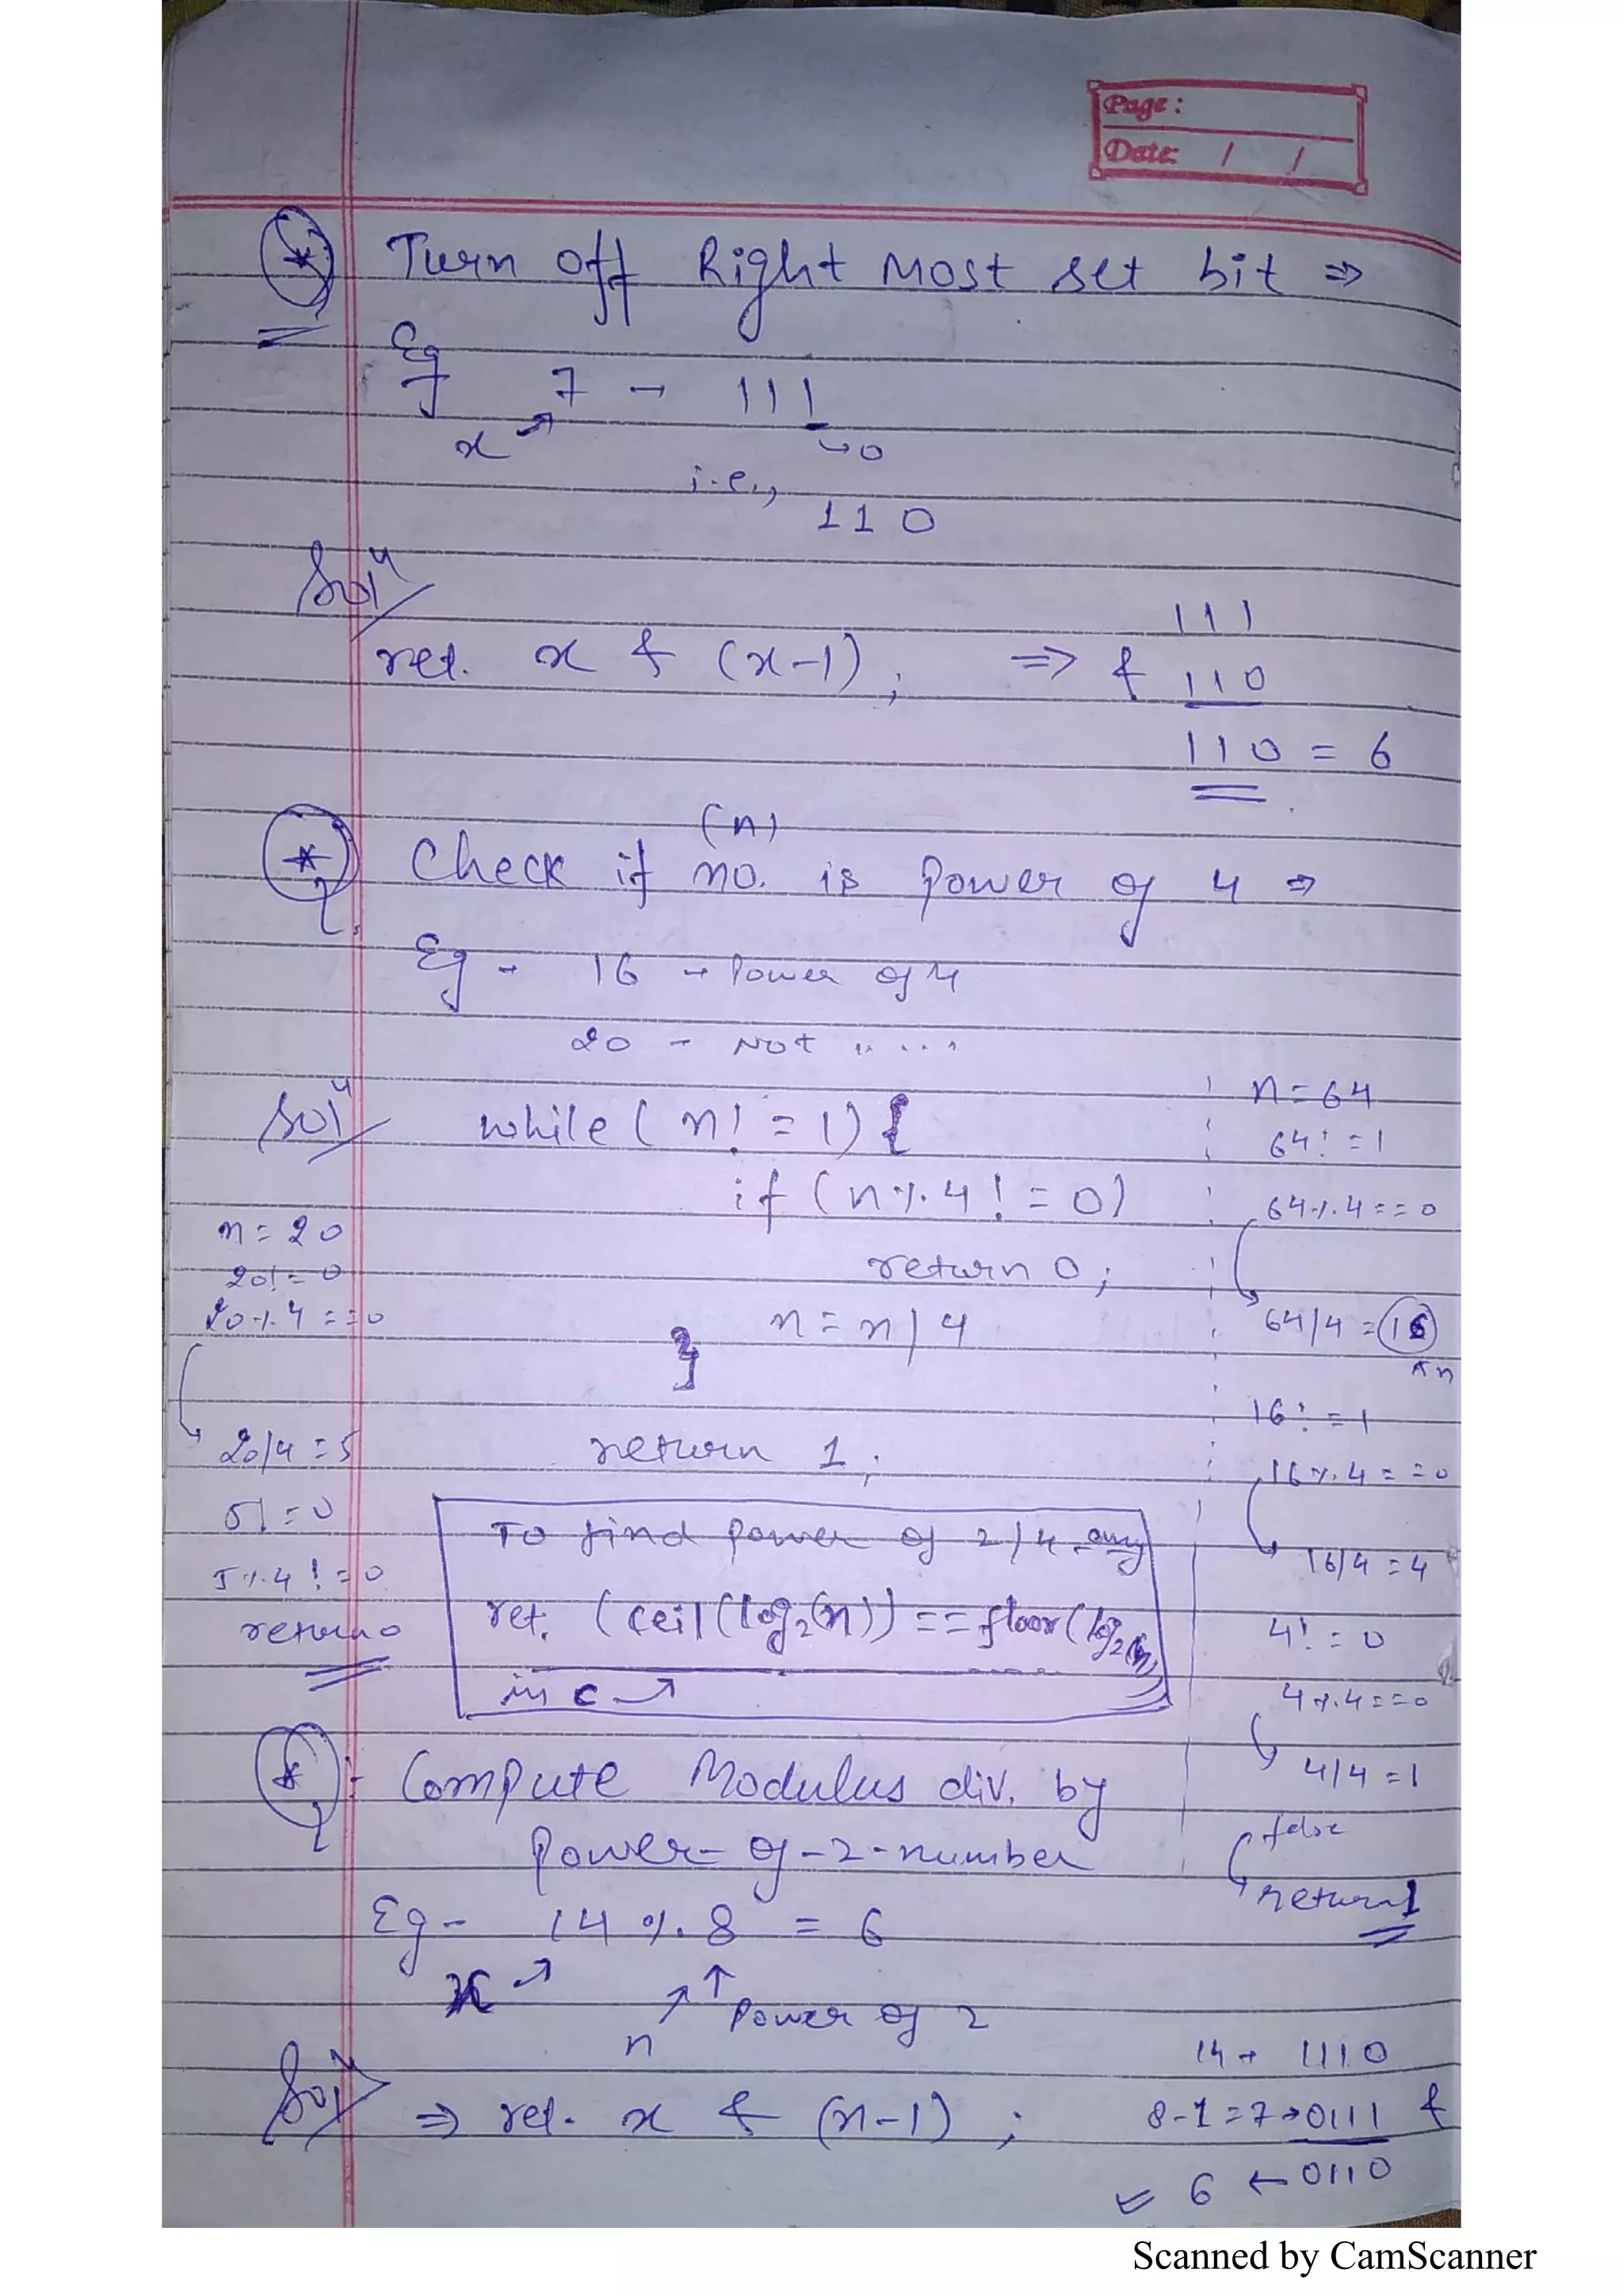 Page :
Date: / /
* Turn off Right Most set bit ⇒
Eg 7 → 111
x ↗ ↪0
i.e.,
110
Solⁿ
111
ret. x & (x-1); ⇒ & 110
110 = 6
(n)
* Q. Check if no. is power of 4 ⇒
Eg - 16 → Power of 4
20 - Not ,, . . . ,
Solⁿ while ( n! = 1) {
if ( n % 4 ! = 0)
return 0;
n = n / 4
}
return 1;
n = 20
20! = 0
20 % 4 = = 0
20/4 = 5
5! = 0
5 % 4 ! = 0
return 0
n = 64
64! = 1
64 % 4 = = 0
64/4 = 16
↖n
16! = 1
16 % 4 = = 0
16/4 = 4
4! = 0
4 % 4 = = 0
4/4 = 1
false
return 1
To find power of 2/4 any
ret. (ceil (log₂(n)) == floor (log₂(n)
in C ↗
* Q : Compute Modulus div. by
Power-of-2-number
Eg - 14 % 8 = 6
x ↗ ↗ ↑ Power of 2
n
Solⁿ ⇒ ret. x & (n-1) ;
14 → 1110
8-1=7→0111 &
= 6 ← 0110
Scanned by CamScanner